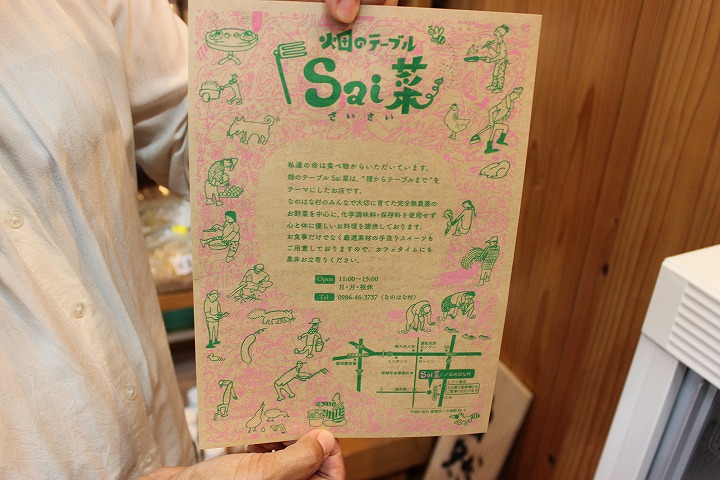 畑のテーブル
Sai菜
さいさい
私達の命は食べ物からいただいています。
畑のテーブル Sai 菜は、"種からテーブルまで"を
テーマにしたお店です。
なのはな村のみんなで大切に育てた完全無農薬の
お野菜を中心に、化学調味料・保存料を使用せず
心と体に優しいお料理を提供しております。
お食事だけでなく厳選素材の手造りスイーツも
ご用意しておりますので、カフェタイムにも
是非お立寄りください。
Open 11:00〜15:00
日・月・祝休
Tel 0986-46-3737（なのはな村）
Sai菜／なのはな村